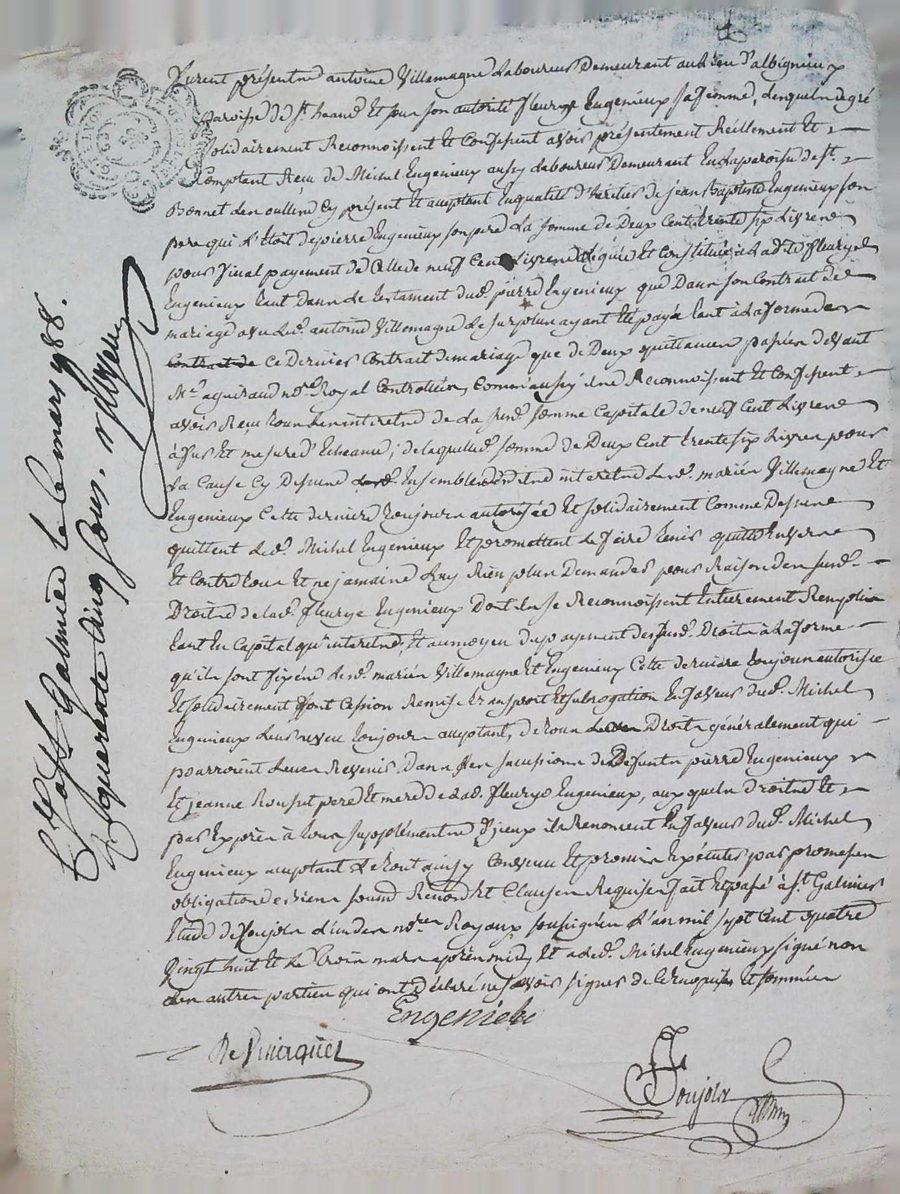 Furent présentns antoine Villemagne Laboureur Demeurant au Lieu d'albignieux
Paroisse de St. haand Et sous son autorité fleurye Engenieux sa femme, Lesquels degré
solidairement Reconnoissent Et Confessent avoir présentement Réellement Et
Comptant Reçu de Michel Engenieux aussy Laboureur Demeurant En la paroisse de St.
Bonnet Les oulles Cy présent Et acceptant En qualité d'héritier de jean Baptiste Engenieux son
pere qui L'étoit de pierre Engenieux son pere La somme de Deux Cent trente six Livres
pour final payement de Celle de neuf Cent Livres Léguée Et Constituée à Ladte fleurye
Engenieux tant Dans Le testament dud. pierre Engenieux que Dans son Contrat de
mariage avec Led. antoine Villemagne Le surplus ayant Eté payé tant à La forme de
Contrat de Ce Dernier Contrat de mariage que de Deux quittances passées devant
Me. aguiraud nore. Royal Controllées, Comme aussy ils Reconnoissent Et Confessent
avoir Reçu tous Les intérêtns de La susd. somme Capitale de neuf Cent Livres
à fur Et mesure d'Echeance; de laquelle somme de Deux Cent trente six Livres pour
La Cause Cy Dessus Ensemble Desdits intérêtns Lesd. mariés Villemagne Et
Engenieux Cette derniere toujours autorisée Et solidairement Comme Dessus
quittent Led. Michel Engenieux Et promettent Le faire tenir quitte Envers
Et Contre tous Et ne jamais Luy Rien plus Demander pour Raison des susd.
Droitns de Lad. fleurye Engenieux Dont ils se Reconnoissent Entierement Remplis
tant En Capital qu'intérêtns, Et au moyen du payement desdsusd. Droits à La forme
qu'ils sont fixés Lesd. mariés Villemagne Et Engenieux Cette derniere toujours autorisée
Et solidairement font Cession Remise transport Et subrogation En faveur dud. Michel
Engenieux Leur neveu toujours acceptant, de tous Droits généralement qui
pourroient Leur Revenir Dans Les successions de Defunts pierre Engenieux
Et jeanne Rousset pere Et mere de Lad. fleurye Engenieux, aux quels Droitns Et
par Exprès à tous supplémentns d'jeux ils Renoncent En faveur dud. Michel
Engenieux acceptant Le tout ainsy Convenu Et promis Exécuter par promesses
obligations de biens soumis Renonons Et Clauses Requises fait Et passé à St. Galmier
Etude de Soujols L'un des nores. Royaux soussignés L'an mil sept Cent quatre
Vingt huit Et Le trois mars après midy Et a Led. Michel Engenieux signé non
Les autres parties qui ont déclaré ne savoir signer de Ce Enquises Et sommées
Engenieux
Soujols
Cté. à St. Galmier le 6 mars 1788.
Rç quarante Cinq sous.